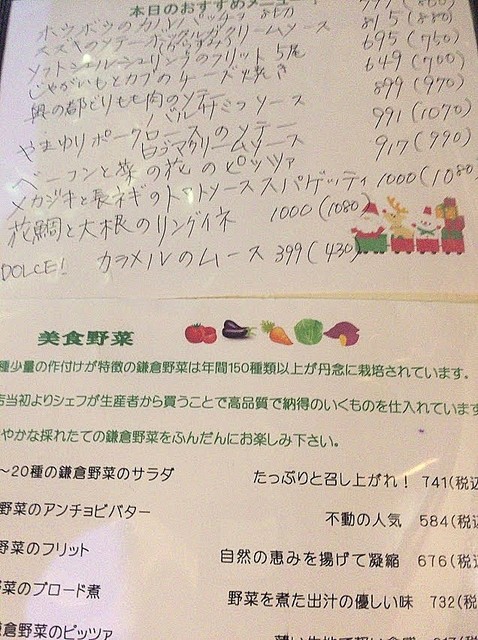 本日のおすすめメニュー 777(840)
ホウボウのカルパッチョ
815(880)
スズキのソテーボッタルガクリームソース
695(750)
ソフトシェルシュリンプのフリット 5尾 649(700)
じゃがいもとカブのチーズ焼き 899(970)
奥の都どりもも肉のソテー
バルサミコソース 991(1070)
やまゆりポークロースのソテー
白ゴマクリームソース 917(990)
ベーコンと菜の花のピッツァ
メカジキと長ネギのトマトソーススパゲッティ 1000(1080
花鯛と大根のリングイネ 1000(1080)
DOLCE! カラメルのムース 399(430)
美食野菜
種少量の作付けが特徴の鎌倉野菜は年間150種類以上が丹念に栽培されています。
店当初よりシェフが生産者から買うことで高品質で納得のいくものを仕入れています
やかな採れたての鎌倉野菜をふんだんにお楽しみ下さい。
～20種の鎌倉野菜のサラダ たっぷりと召し上がれ！ 741(税込
野菜のアンチョビバター 不動の人気 584(税込
野菜のフリット 自然の恵みを揚げて凝縮 676(税込
野菜のブロード煮 野菜を煮た出汁の優しい味 732(税
倉野菜のピッツァ